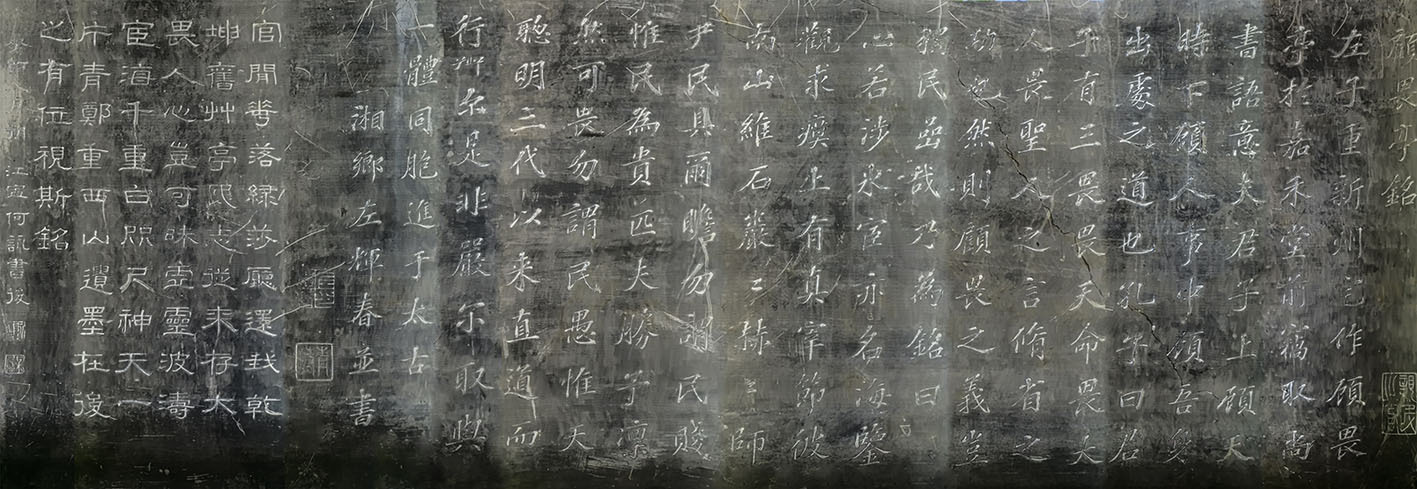 顧畏亭銘
左子重新州邑作顧畏
亭於嘉禾堂前竊取尚
書語意夫君子上顧天
時下顧人事中顧吾身
出處之道也孔子曰君
子有三畏畏天命畏大
人畏聖人之言脩省之
功也然則顧畏之義豈
獨民喦哉乃為銘曰
心若涉氷宦亦名海鑒
觀求瘼上有真宰節彼
南山維石巖〻赫〻師
尹民具爾瞻勿謂民賤
惟民為貴匹夫勝予凛
然可畏勿謂民愚惟天
聰明三代以來直道而
行尔是非嚴尔取與
一體同胞進于太古
湘鄉左輝春並書
官閒華落綠莎廳還我乾
坤舊艸亭民志從來存大
畏人心豈可昧虚靈波濤
宦海千重白咫尺神天一
片青鄭重西山遺墨在後
之有位視斯銘
江寧何書後